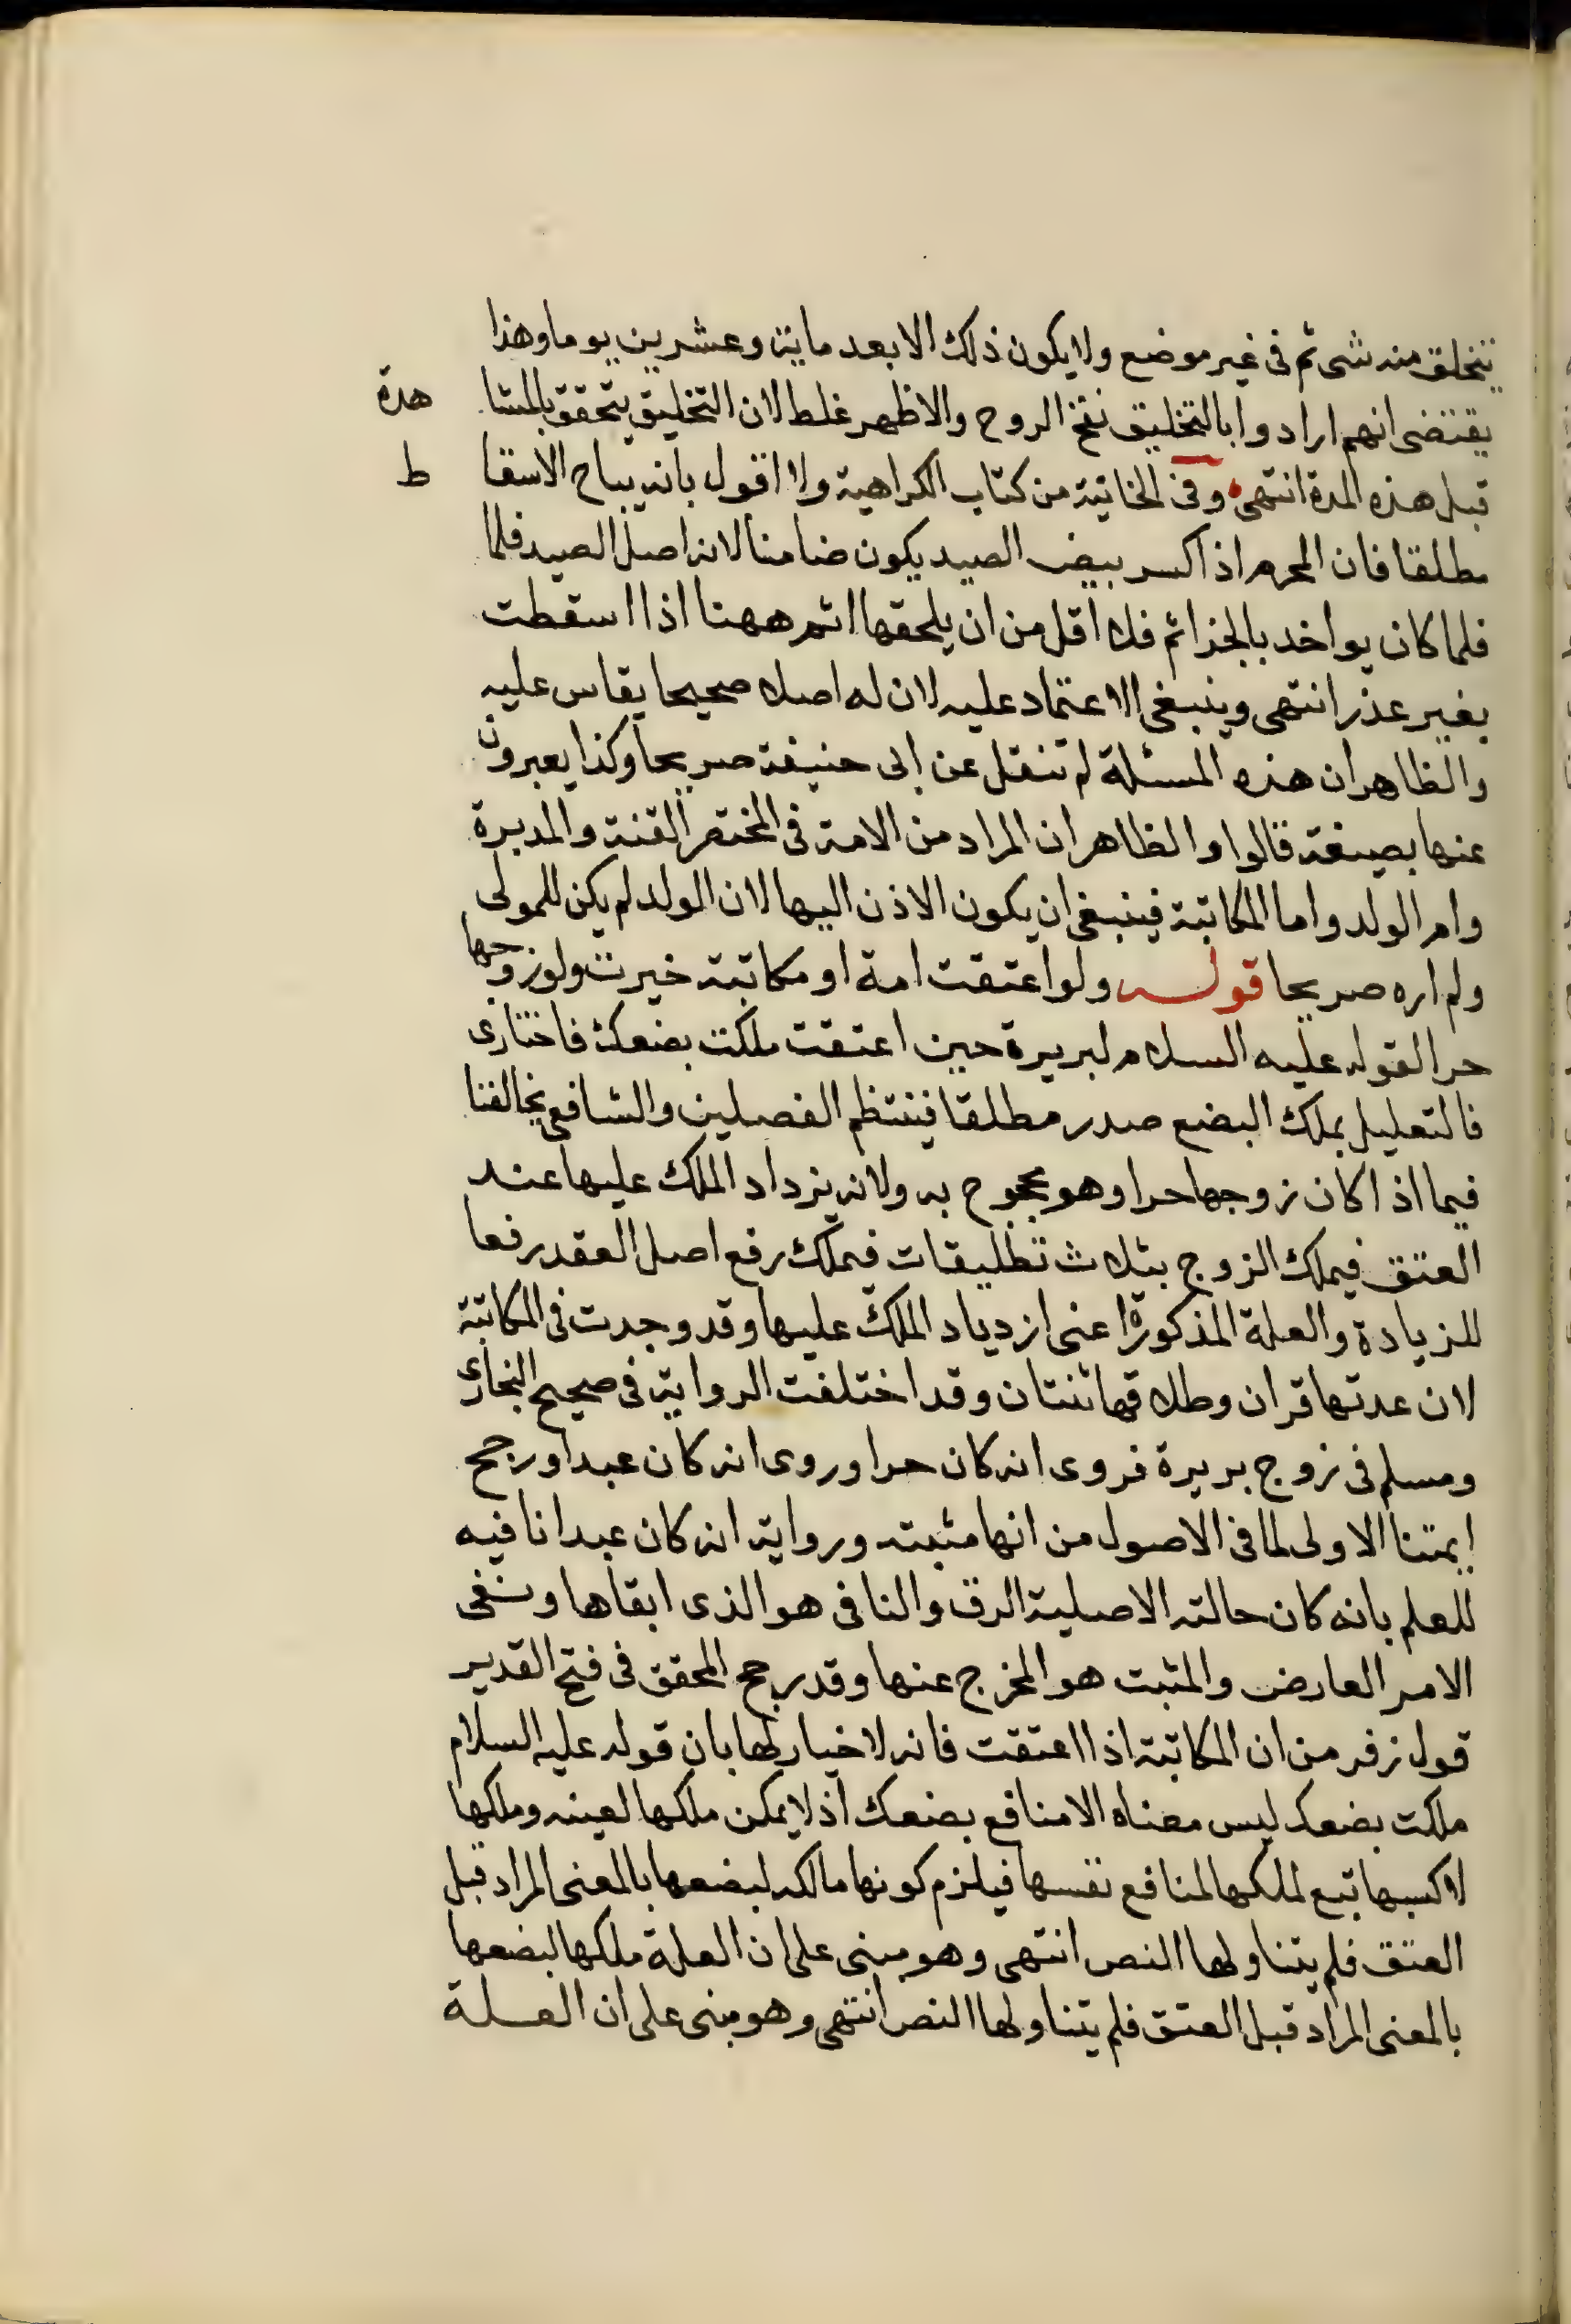 يتخلق منه شى ثم فى غير موضع ولا يكون ذلك الا بعد ماية وعشرين يوما وهذا
يقتضى انهم ارادوا بالتخليق نفخ الروح والا ظهر غلط لان التخليق يتحقق بالمشا هدة
قبل هذه المدة انتهى وفى الخانية من كتاب الكراهية ولا اقول بانه يباح الاسقا ط
مطلقا فان المحرم اذا كسر بيض الصيد يكون ضامنا لانه اصل الصيد فلما
فلما كان يواخد بالجزائم فلا اقل من ان يلحقها اثم ههنا اذا اسقطت
بغير عذر انتهى وينبغى الاعتماد عليه لان له اصلا صحيحا يقاس عليه
والظاهر ان هذه المسئلة لم تنقل عن ابى حنيفة صريحا وكذا يعبرون
عنها بصيغة قالوا والظاهر ان المراد من الامة فى المختصر القنة والمدبرة
وام الولد واما المكاتبة فينبغى ان يكون الاذن اليها لان الولد لم يكن للمولى
ولم اره صريحا قوله ولو اعتقت امة او مكاتبة خيرت ولو زوجها
حرا لقوله عليه السلام لبريرة حين اعتقت ملكت بضعك فاختارى
فالتعليل بملك البضع صدر مطلقا فينتظم الفصلين والشافعى يخالفنا
فيما اذا كان زوجها حرا وهو محجوج به ولانه يزداد الملك عليها عند
العتق فيملك الزوج بثلاث تطليقات فيملك رفع اصل العقد رفعا
للزيادة والعلة المذكورة اعنى ازدياد الملك عليها وقد وجدت فى المكاتبة
لان عدتها قران وطلاقها ثنتان وقد اختلفت الرواية فى صحيح البخارى
ومسلم فى زوج بريرة فروى انه كان حرا وروى انه كان عبدا ورجح
ايمتنا الاولى لما فى الاصول من انها مثبته ورواية انه كان عبدا نافيه
للعلم بانه كان حالته الاصلية الرق والنافى هو الذى ابقاها ونفى
الامر العارض والمثبت هو المخرج عنها وقد رجح المحقق فى فتح القدير
قول زفر من ان المكاتبة اذا اعتقت فانه لا خيار لها بان قوله عليه السلام
ملكت بضعك ليس معناه الا منافع بضعك اذ لا يمكن ملكها لعينه وملكها
لاكسبها تبع لملكها لمنافع نفسها فيلزم كونها مالكه لبضعها بالمعنى المراد قبل
العتق فلم يتناولها النص انتهى وهو مبنى على ان العلة ملكها لبضعها
بالمعنى المراد قبل العتق فلم يتناولها النص انتهى وهو مبنى على ان العلة